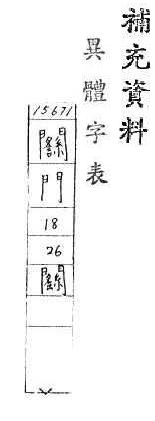 補充資料
異體字表
15671
門
18
26
關